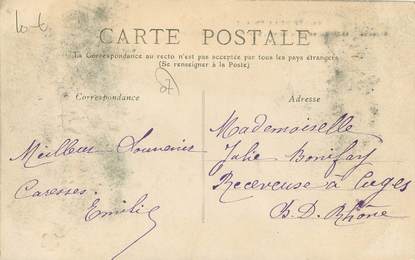 10-6
CARTE POSTALE
La Correspondance au recto n'est pas acceptée par tous les pays étrangers
(Se renseigner à la Poste)
Correspondance
Adresse
Meilleur Souvenir
Caresses.
Emilie
Mademoiselle
Julie Bonifay
Receveuse à Cuges
B. D. Rhône